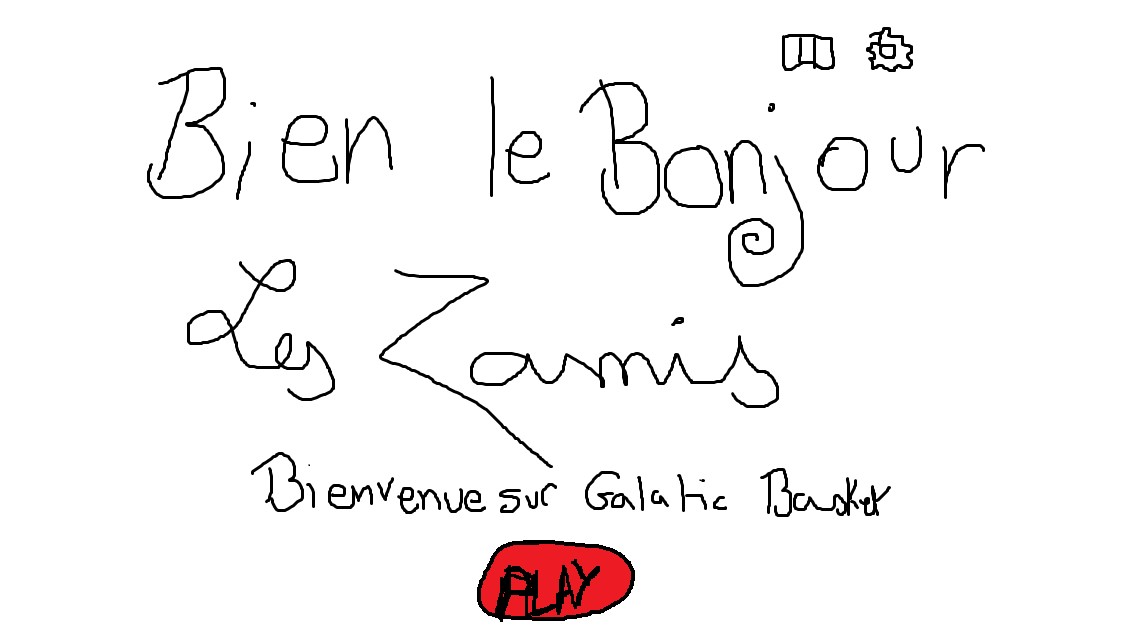 Bien le Bonjour
Les Zamis
Bienvenue sur Galatic Basket
PLAY